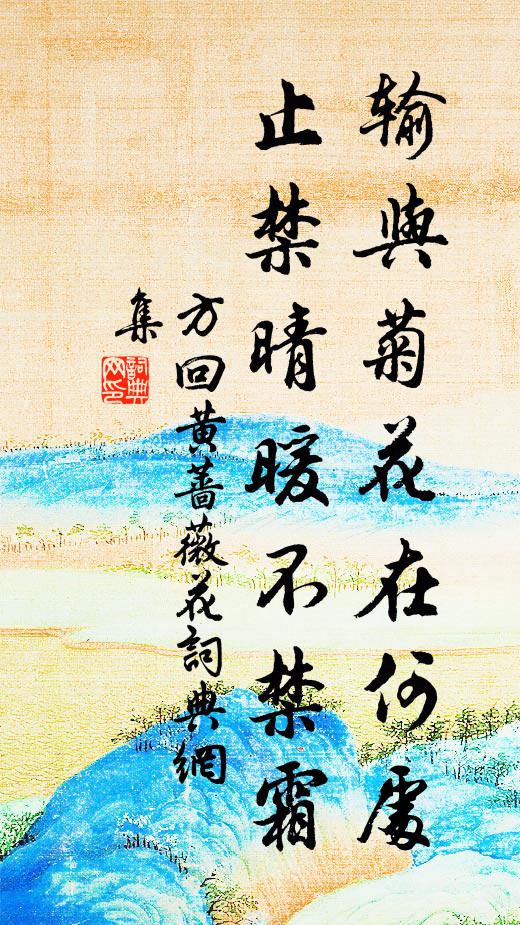 输與菊花在何處
止禁晴暖不禁霜
方回黄蔷薇花詞典網
集
詞典
网印